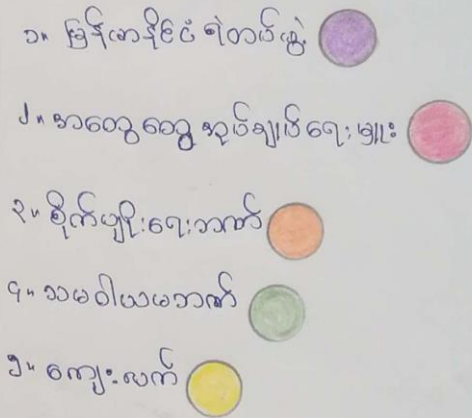 ၁။ မြန်မာနိုင်ငံ ရဲတပ်ဖွဲ့
၂။ အထွေထွေ အုပ်ချုပ်ရေးမှူး
၃။ စိုက်ပျိုးရေးဘဏ်
၄။ သမဝါယမဘဏ်
၅။ ကျေးလက်